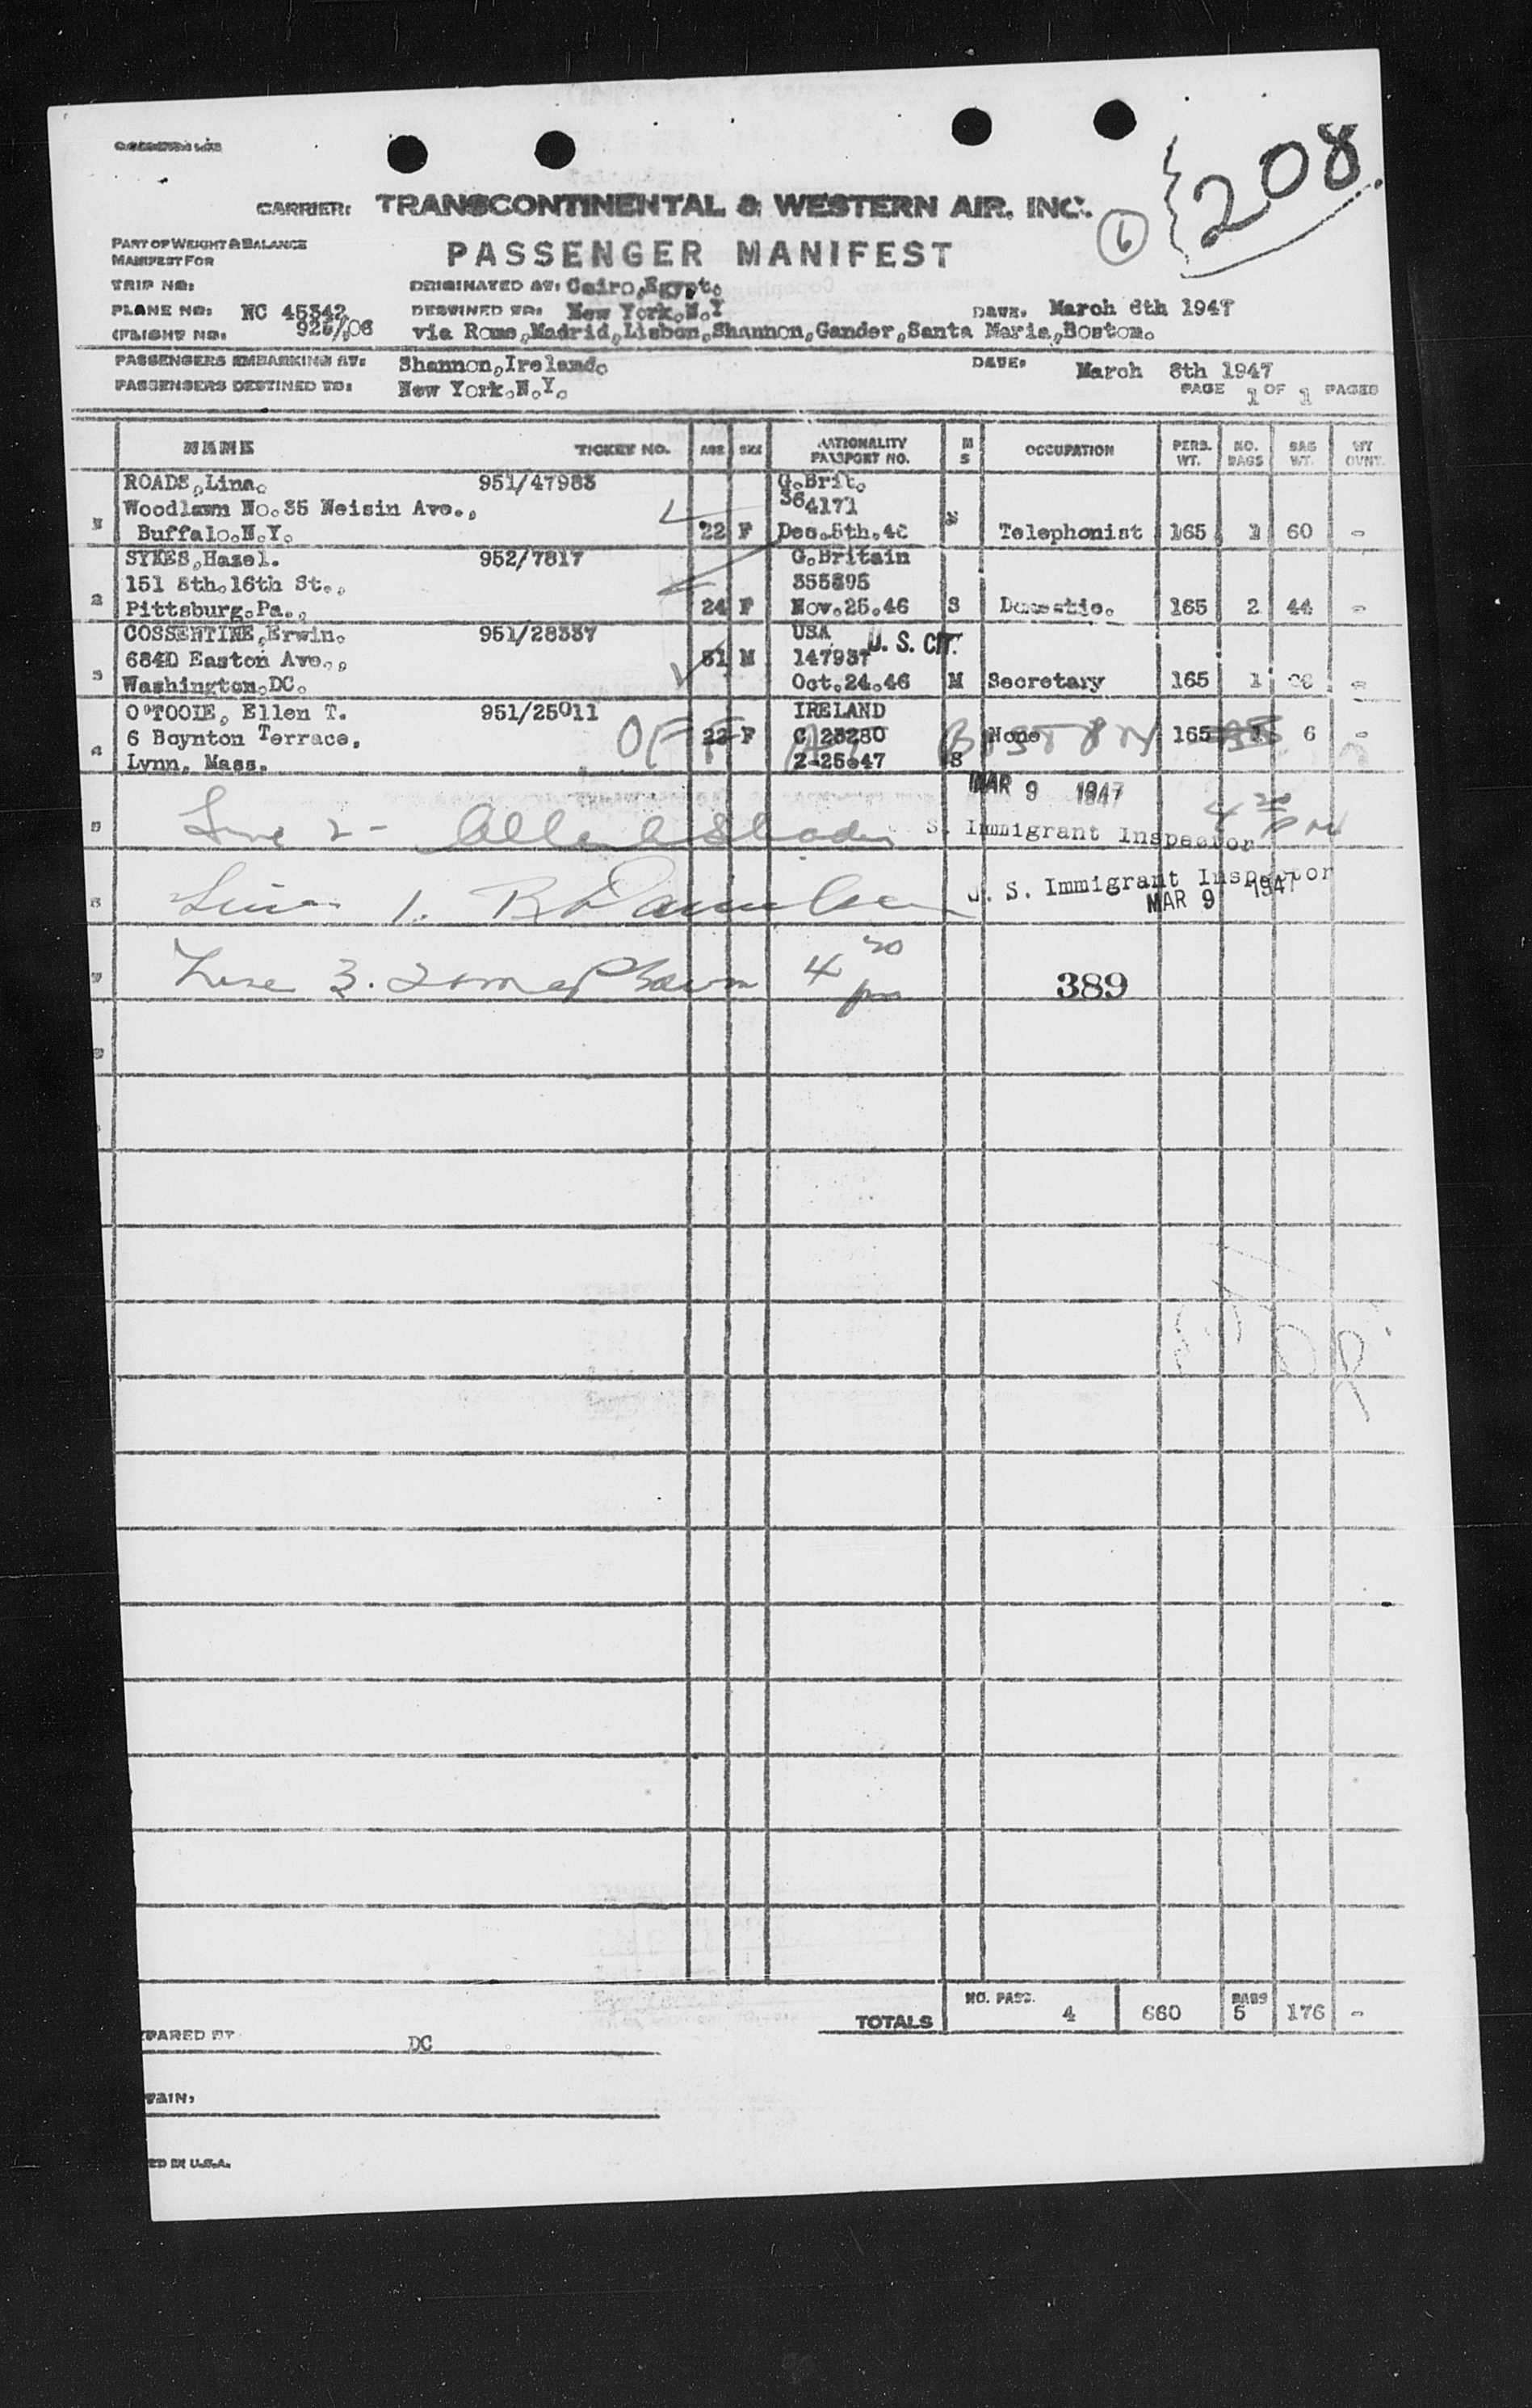 208
CARRIER: TRANSCONTINENTAL & WESTERN AIR. INC.
6
PART OF WEIGHT & BALANCE
MANIFEST FOR
PASSENGER MANIFEST
TRIP NO: ORIGINATED AT: Cairo,Egypt.
PLANE NO: NC 45342 DESTINED TO: New York.N.Y DATE. March 6th 1947
(FLIGHT NO: via Rome,Madrid,Lisbon,Shannon,Gander,Santa Maria,Boston.
PASSENGERS EMBARKING AT: Shannon,Ireland. DATE: March 8th 1947
PASSENGERS DESTINED TO: New York.N.Y. PAGE 1 OF 1 PAGES
NAME TICKET NO. AGE SEX NATIONALITY PASSPORT NO. M S OCCUPATION PERS. WT. NO. BAGS BAG WT.
ROADS,Lina. 951/47983 G.Brit.
Woodlawn No.35 Neisin Ave., 364171
1 Buffalo.N.Y. 22 F Dec.5th.46 S Telephonist 165 1 60 -
SYKES,Hazel. 952/7817 G.Britain
151 8th.16th St., 355895
2 Pittsburg.Pa., 24 F Nov.25.46 S Domestic. 165 2 44 -
COSSENTINE,Erwin. 951/28387 USA U. S. CIT.
684D Easton Ave., 51 M 147937
3 Washington.DC. Oct.24.46 M Secretary 165 1 -
O'TOOIE, Ellen T. 951/25011 IRELAND
6 Boynton Terrace, OFF 22 F AT C 23280 BOSTON None 165 1 6 -
4 Lynn, Mass. 2-25.47 S
MAR 9 1947
5 Line 2 - S. Immigrant Inspector 4 20 PM
6 Line 1. U. S. Immigrant Inspector
MAR 9 1947
7 Line 3. 4 20 pm 389
TOTALS NO. PASS. 4 660 BAGS 5 176 -
PARED BY DC
TAIN:
ED IN U.S.A.